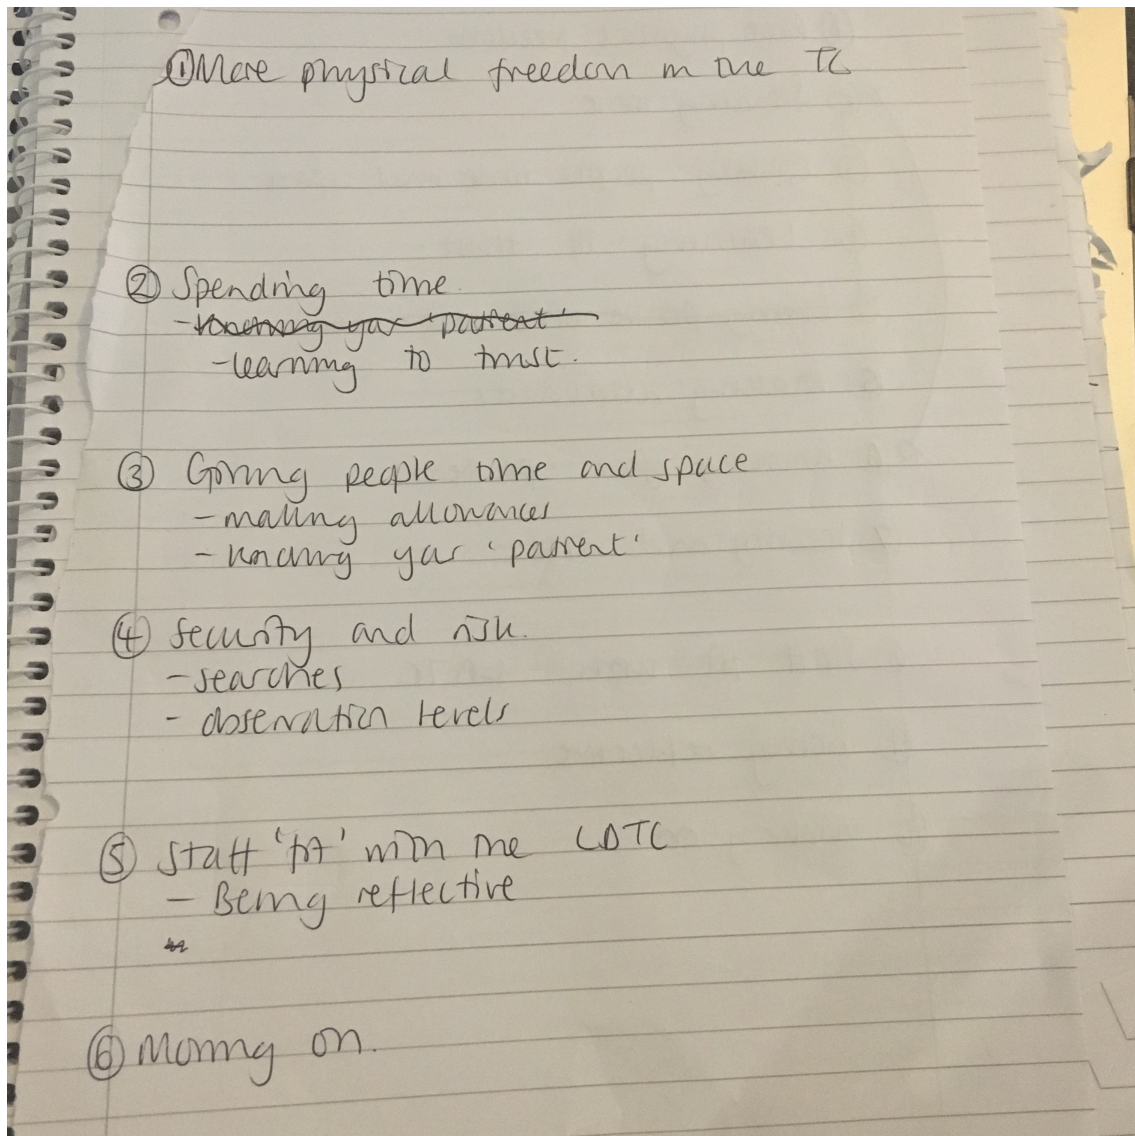 ① More physical freedom in the TC
② Spending time.
- knowing your 'patient'
- learning to trust.
③ Giving people time and space
- making allowances
- knowing your 'patient'
④ Security and risk.
- searches
- observation levels
⑤ Staff 'fit' with the LDTC
- Being reflective
⑥ Moving on.